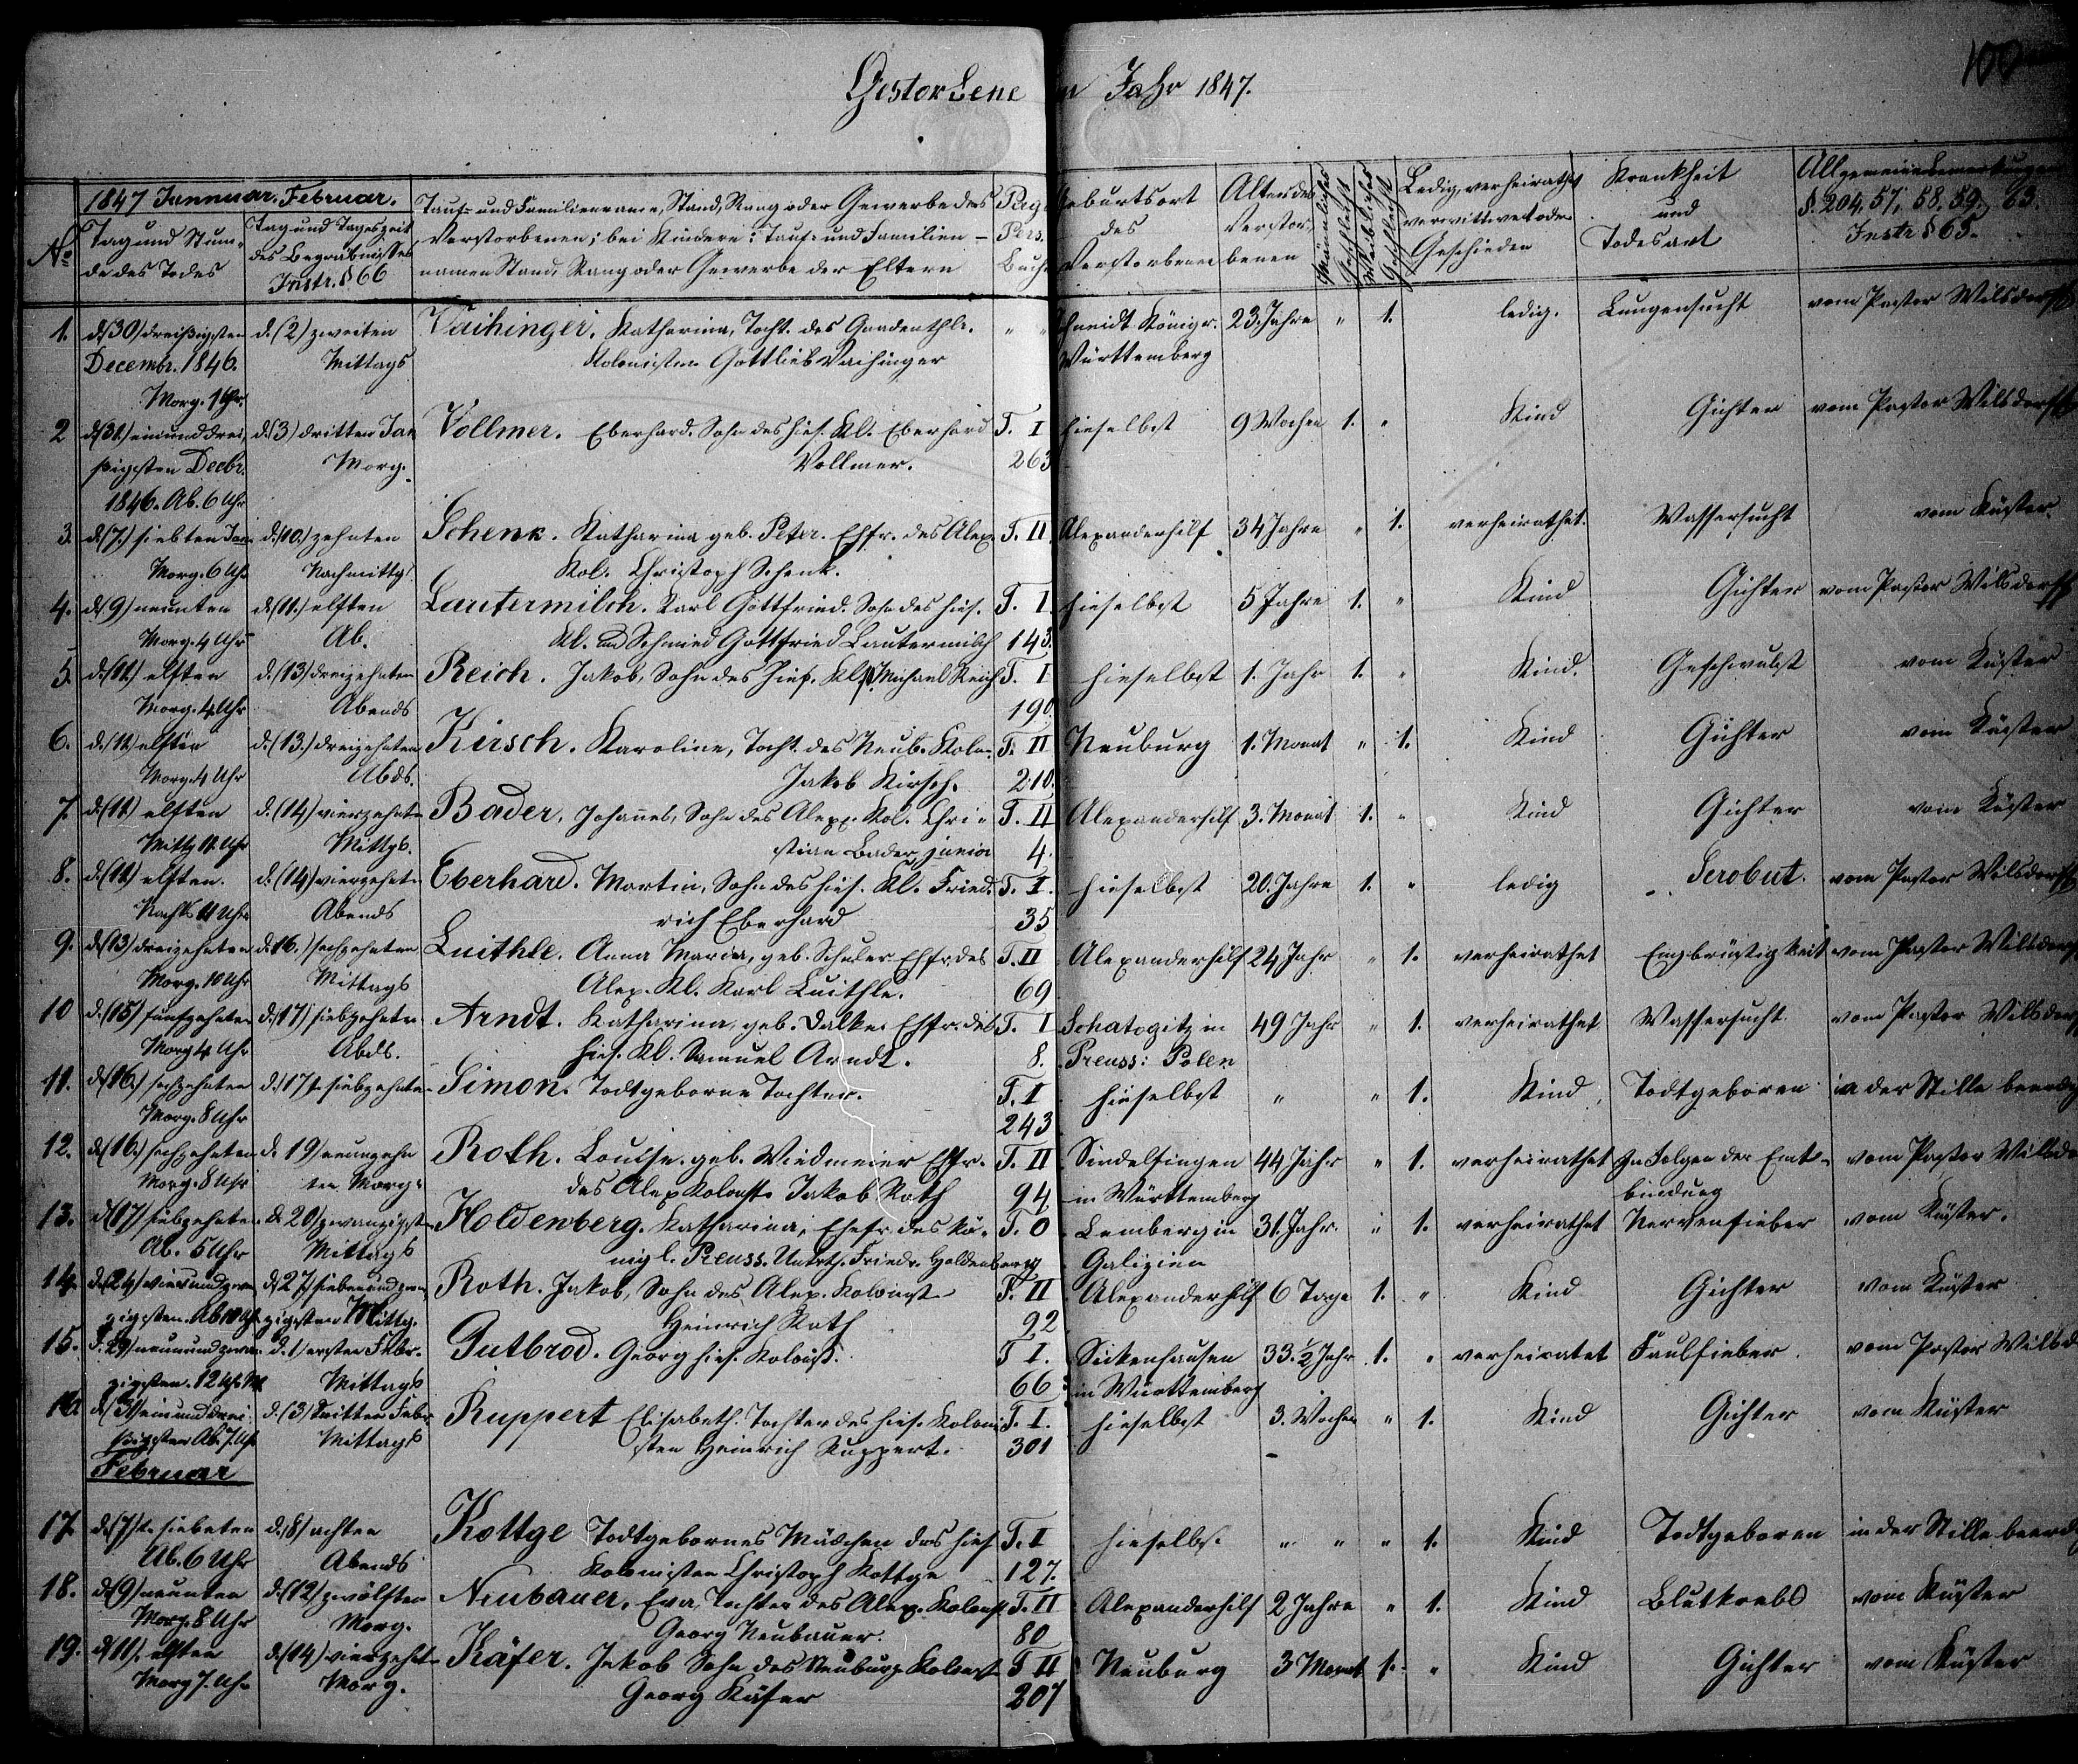 100
Gestorbene im Jahr 1847.
1847 Jannuar. Februar.
No
Tag und Stunde des Todes
Tag und Tageszeit des Begräbnisses Instr. § 66
Tauf- und Familienname, Stand, Rang oder Gewerbe des Verstorbenen; bei Kindern: Tauf- und Familiennamen Stand, Rang oder Gewerbe der Eltern
Pag. Pers. Buch
Geburtsort des Verstorbenen
Alter des Verstorbenen
Männliches Geschlecht
Weibliches Geschlecht
Ledig, verheirathet verwittwet oder Geschieden
Krankheit und Todesart
Allgemeine Bemerkungen §. 204. 57, 58. 59. 63. Instr § 65.
1. d. (30) dreißigsten d. (2) zweiten Vaihinger. Katharina, Tocht. des Gnadenthlr. " " Königr. 23. Jahre " 1. ledig. Lungensucht vom Pastor Wilsdorff
Decembr. 1846. Mittags Kolonisten Gottlieb Vaihinger Württemberg
Morg. 1 Uhr.
2 d. (31) einunddrei- d. (3) dritten Jan Vollmer. Eberhard. Sohn des hies. Kl. Eberhard T. I hieselbst 9 Wochen 1. " Kind Gichter vom Pastor Wilsdorff
ßigsten Decbr. Morg. Vollmer. 263
1846. Ab. 6 Uhr
3. d. (7.) siebten Jan d. (10.) zehnten Schenk. Katharina geb. Peter. Ehfr. des Alex. T. II. Alexanderhilf 34 Jahre " 1. verheirathet. Wassersucht vom Küster.
Morg. 6 Uhr Nachmittg. Kol. Christoph Schenk.
4. d. (9) neunten d. (11.) elften Lautermilch. Karl Gottfried. Sohn des hies. T. I. hieselbst 5 Jahre 1. " Kind Gichter vom Pastor Wilsdorff
Morg. 4 Uhr Ab. Kl. und Schmied Gottfried Lautermilch 143.
5. d. (11.) elften d. (13) dreizehnten Reich. Jakob, Sohn des hies. Kl. Michael Reich T. I hieselbst 1. Jahr 1. " Kind. Geschwulst vom Küster
Morg. 4 Uhr Abends 190.
6. d. (11) elften d. (13.) dreizehnten Kirsch. Karoline, Tocht. des Neub. Kolon. T. II Neuburg 1. Monat " 1. Kind Gichter vom Küster
Morg. 4 Uhr Abds. Jakob Kirsch. 210.
7. d. (11) elften d. (14) vierzehnten Bader, Johannes, Sohn des Alex. Kol. Chri- T. II Alexanderhilf 3. Monat 1. " Kind Gichter vom Küster
Mittg. Uhr Mittgs. stian Bader, junior 4.
8. d. (11) elften. d. (14) vierzehnten Eberhard. Martin, Sohn des hies. Kl. Fried- T. I. hieselbst 20. Jahre 1. " ledig Serobut. vom Pastor Wilsdorff
Nachts 11 Uhr Abends rich Eberhard 35
9. d. (13) dreizehnten d. 16.) sechzehnten Luithle. Anna Maria, geb. Schuler Ehfr. des T. II Alexanderhilf 24 Jahr " 1. verheirathet Engbrüstigkeit vom Pastor Wilsdorff
Morg. 10 Uhr Mittags Alex. Kl. Karl Luithle. 69
10 d. (15) fünfzehnten d. (17) siebzehnten Arndt. Katharina, geb. Dalke. Ehfr. des T. I Schatogitz in 49 Jahr " 1. verheirathet Wassersucht. vom Pastor Wilsdorff
Morg 4 Uhr Abds. hies. Kl. Samuel Arndt. 8. Preuss: Polen
11. d. (16.) sechzehnten d. 17t. siebzehnten Simon. Todtgeborne Tochter. T. I hieselbst " " 1. Kind, Todtgeboren in der Stille beerdig
Morg. 8 Uhr 243
12. d. (16.) sechzehnten d. 19) neunzehn Roth. Louise. geb. Wiedmeier Ehfr. T. II Sindelfingen 44 Jahr " 1. verheirathet In Folgen der Ent- vom Pastor Wilsdo
Morg. 8 Uhr ten Morg. des Alex Kolonisten Jakob Roth 94 in Württemberg bindung
13. d. (17) siebzehnten d. 20) zwanzigsten Holdenberg. Katharina, Ehefr. des kö- T. O Lemberg in 31. Jahr. " 1. verheirathet Nervenfieber vom Küster.
Ab. 5 Uhr Mittags nigl. Preuss. Untrth. Friedr. Holdenberg Galizien
14. d. (24) vierundzwan- d. 27) siebenundzwan- Roth. Jakob, Sohn des Alex. Kolonist T. II Alexanderhilf 6 Tage 1. " Kind Gichter vom Küster
zigsten. Ab 10 Uhr zigsten Mittg. Heinrich Roth 92
15. d. 29) neunundzwan- d. 1) ersten Febr. Gutbrod. Georg hies. Kolonist. T I. Sickenhausen 33. 1/2 Jahr 1. " verheiratet Faulfieber. vom Pastor Wilsd
zigsten. 12 Uhr M Mittags 66 in Württemberg
16 d. (31) einunddrei- d. (3) dritten Febr Ruppert Elisabeth. Tochter des hies. Koloni- T. I. hieselbst 3. Wochen " 1. Kind Gichter vom Küster
ßigsten Ab. 7. Uhr Mittags sten Heinrich Ruppert. 301
Februar
17. d. (7)t. siebeten d. (8) achten Kottge Todtgebornes Mädchen des hies T. I hieselbst " " " 1. Kind Todtgeboren in der Stille beerdig
Ab. 6 Uhr Abends Kolonisten Christoph Kottge 127.
18. d. (9) neunten d. (12) zwölften Neubauer. Eva, Tochter des Alex. Kolonist T. II Alexanderhilf 2 Jahre " 1. Kind Blutkrebs vom Küster
Morg. 8 Uhr Morg. Georg Neubauer. 80
19. d. (11). elften d. (14) vierzehnt Käfer. Jakob Sohn des Neuburg. Kolonist T II Neuburg 3 Monat 1. " Kind Gichter vom Küster
Morg 7. Uhr Morg. Georg Käfer 207